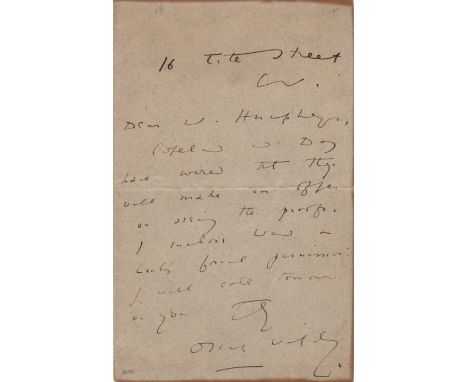 16 Tite Street
S.W.
Dear Mr Humphreys,
Copeland and Day
have wired that they
will make an offer
on seeing the proofs.
I enclose Ward and
Lock's formal permission.
I will call tomorrow
on you.
Oscar Wilde